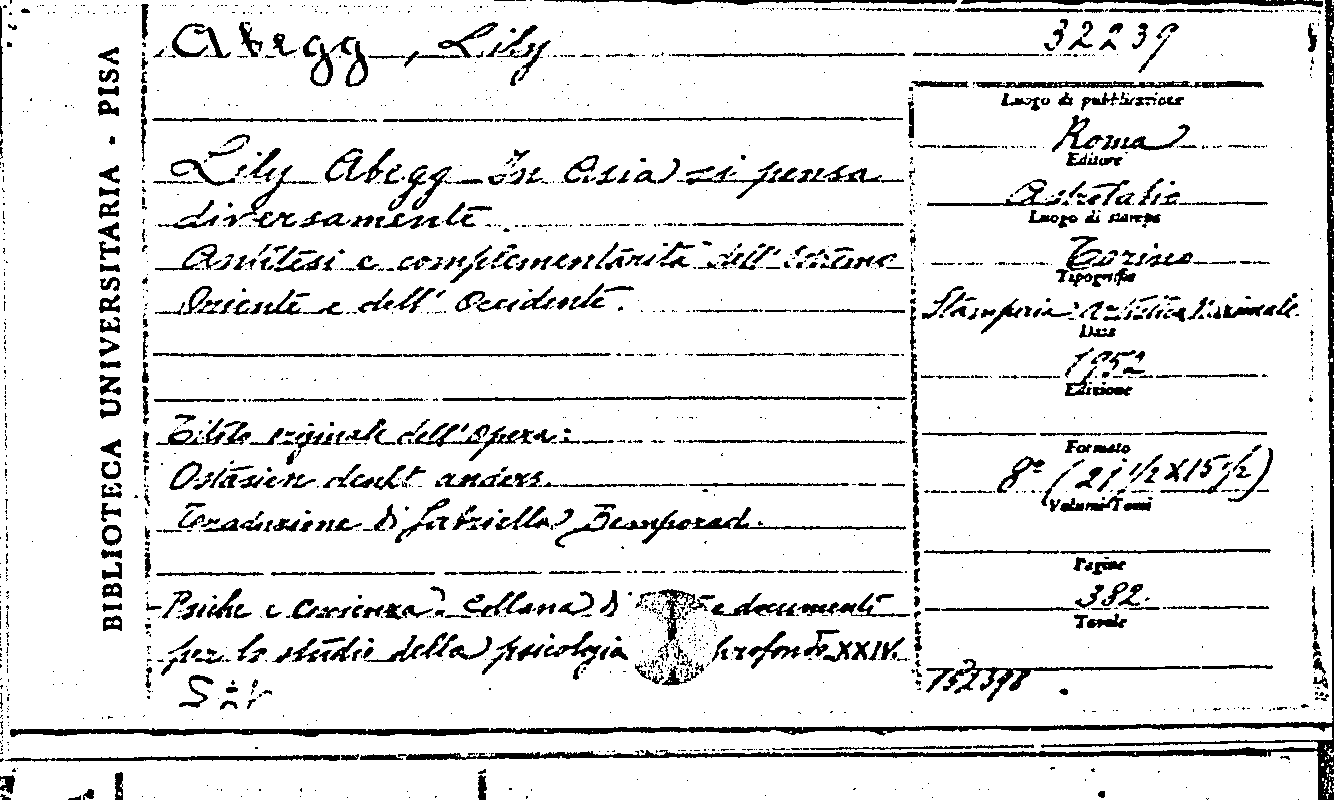 Abegg, Lily
32239
BIBLIOTECA UNIVERSITARIA - PISA
Lily Abegg In Asia si pensa
diversamente
Antitesi e complementarità dell'Estremo
Oriente e dell'Occidente.
Titolo originale dell'Opera:
Ostasien denkt anders.
Traduzione di Gabriella Bemporad.
Psiche e Coscienza. Collana di e documenti
per lo studio della psicologia profondo XXIV.
Luogo di pubblicazione
Roma
Editore
Astrolabio
Luogo di stampa
Torino
Tipografia
Stamperia Artistica Nazionale
Data
1952
Edizione
Formato
8° (21 1/2 X 15 1/2)
Volumi-Tomi
Pagine
382.
Tavole
152398